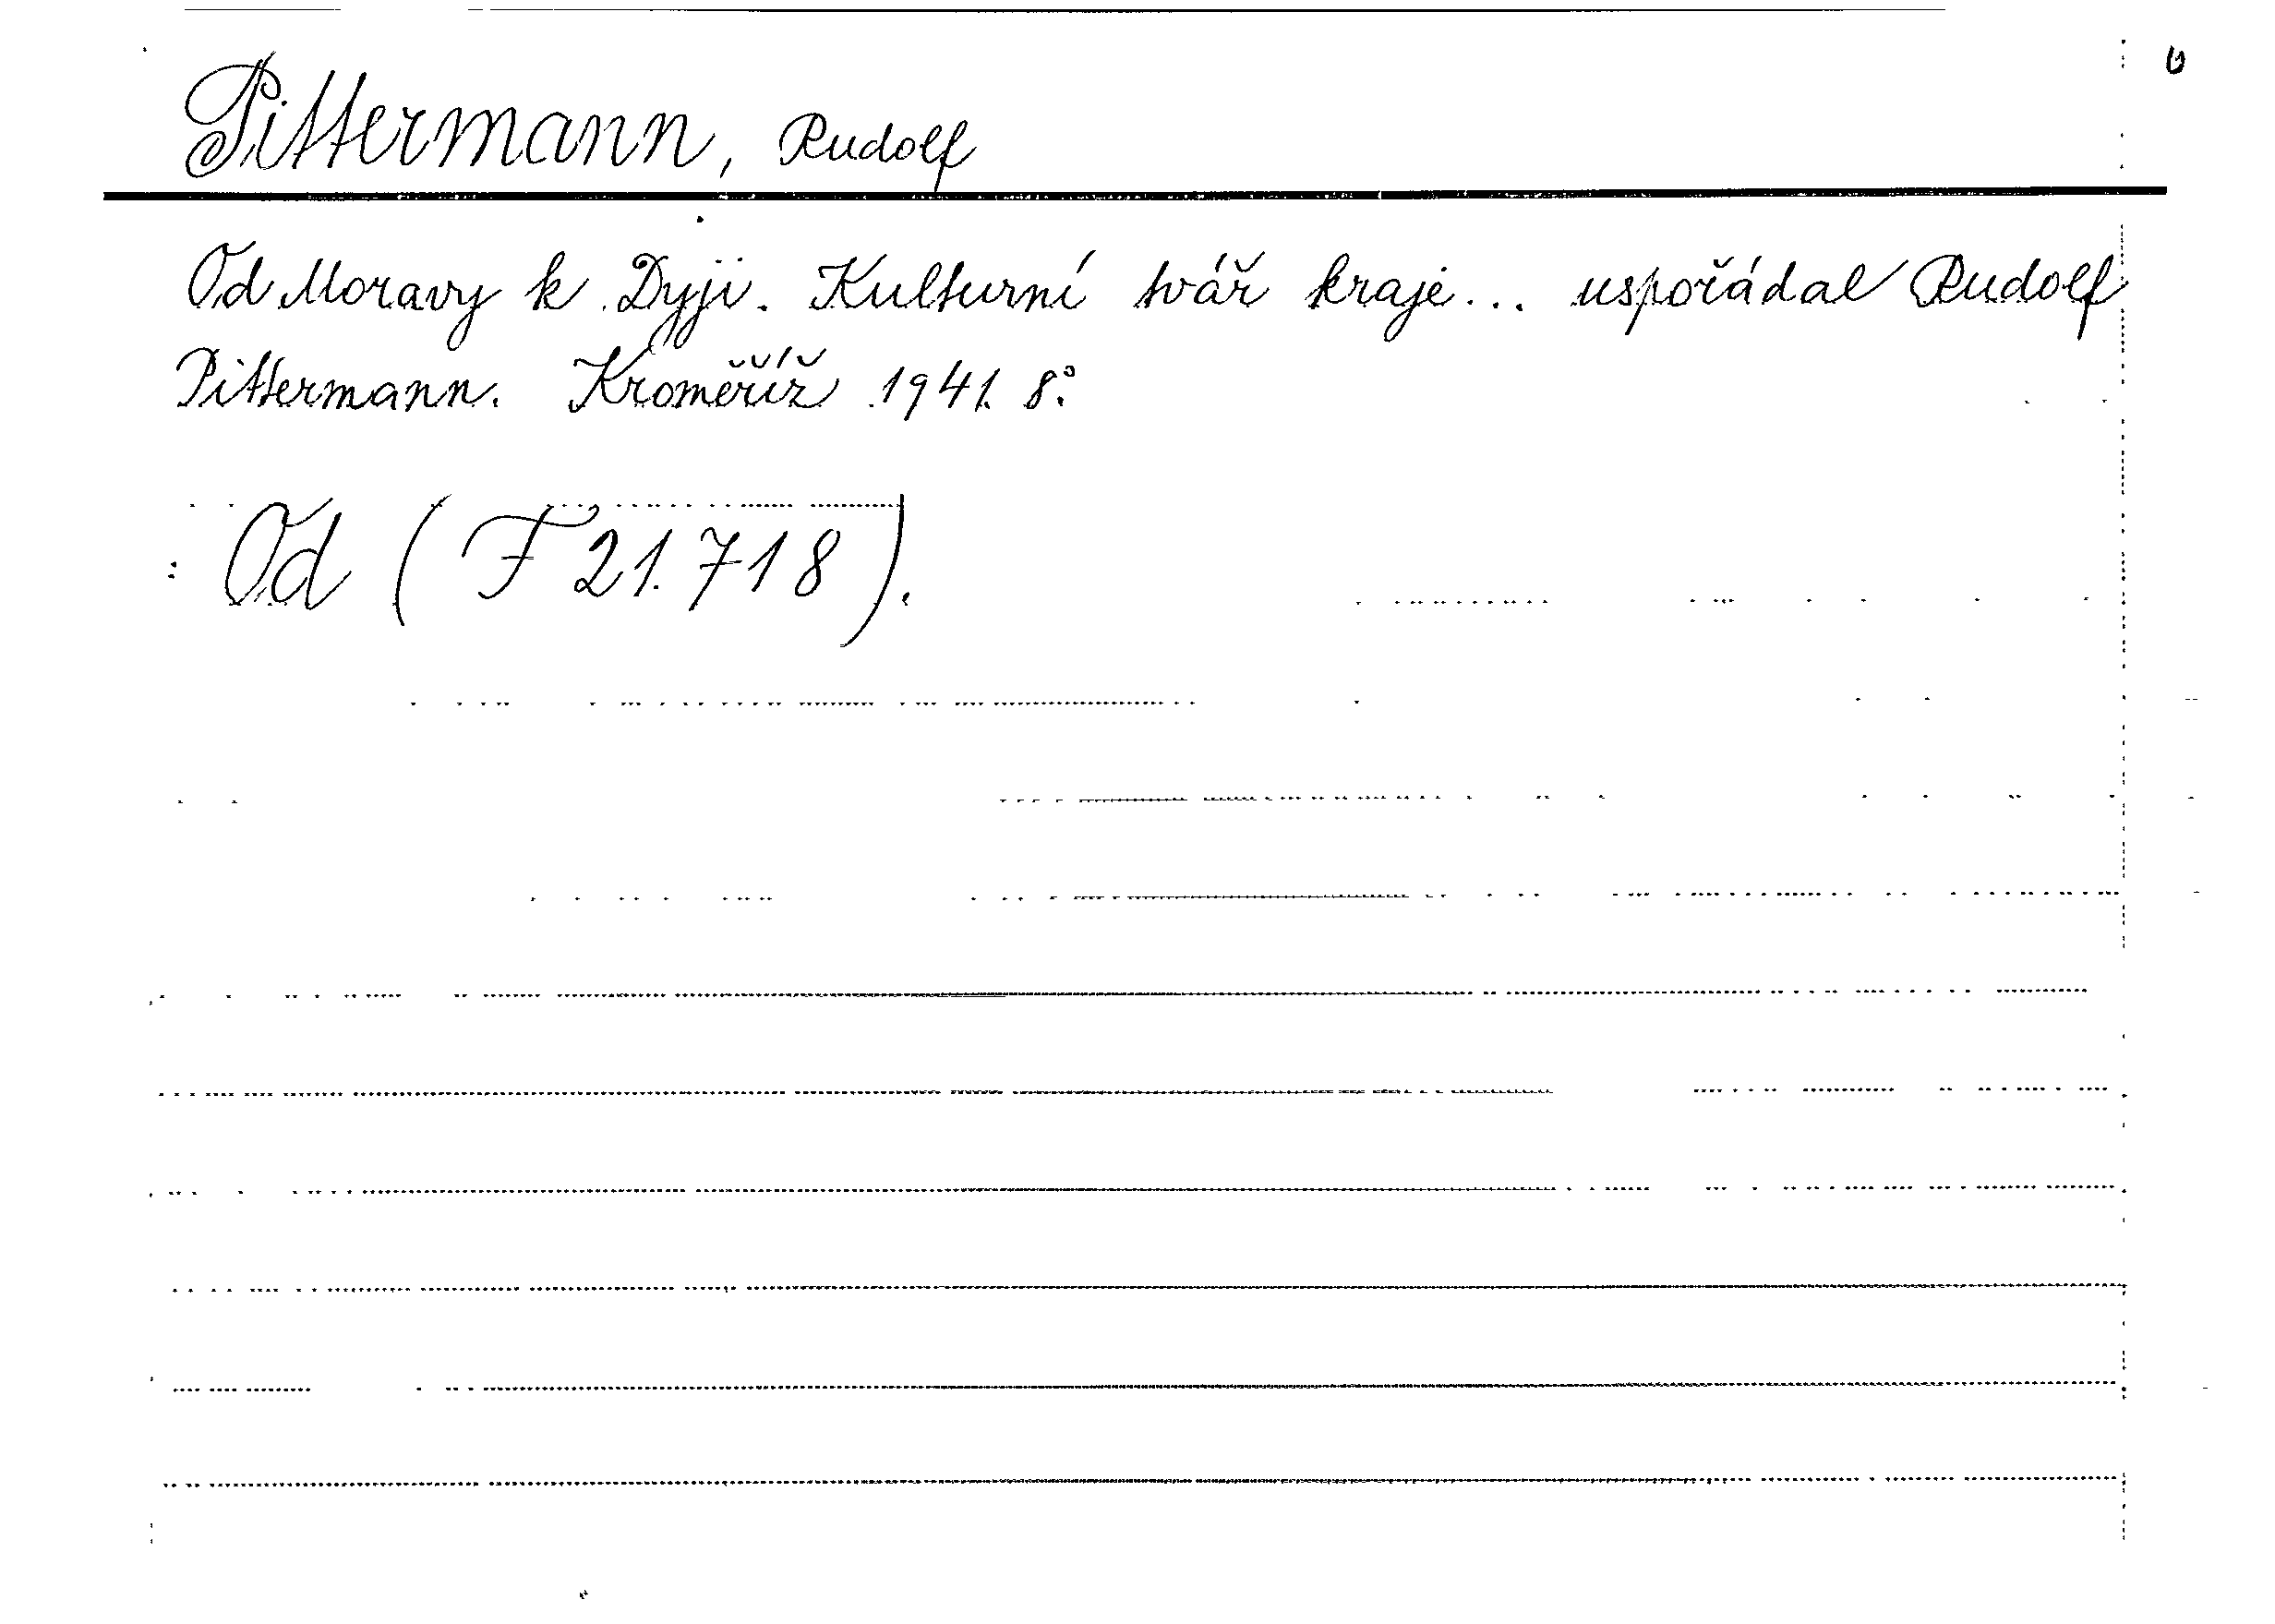 Pittermann, Rudolf
Od Moravy k Dyji. Kulturní tvář kraje... uspořádal Rudolf
Pittermann. Kroměříž 1941. 8°.
Od (F 21.718).